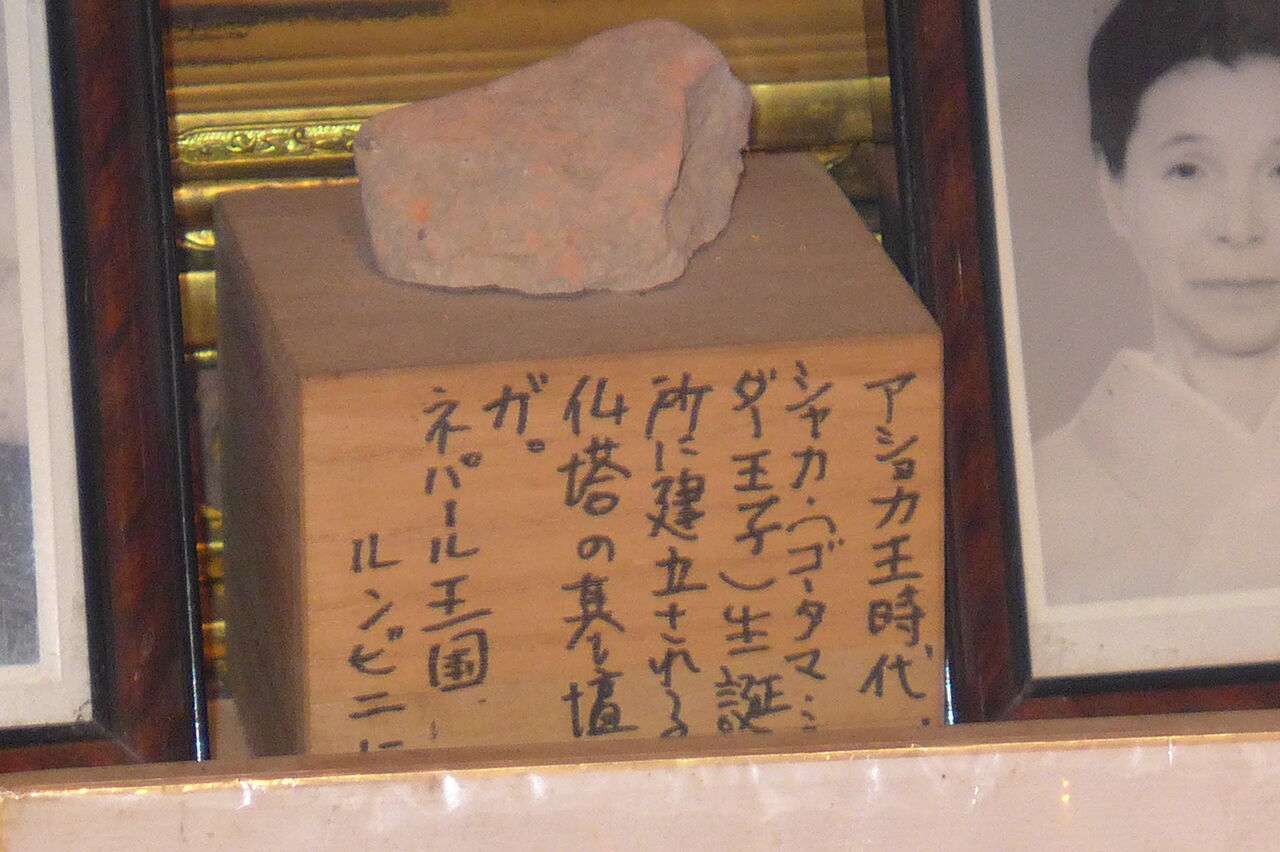 アショカ王時代、
シャカ・(ゴータマ・シ
ダー王子)生誕
所に建立される
仏塔の基壇
ガ。
ネパール王国
ルンビニに